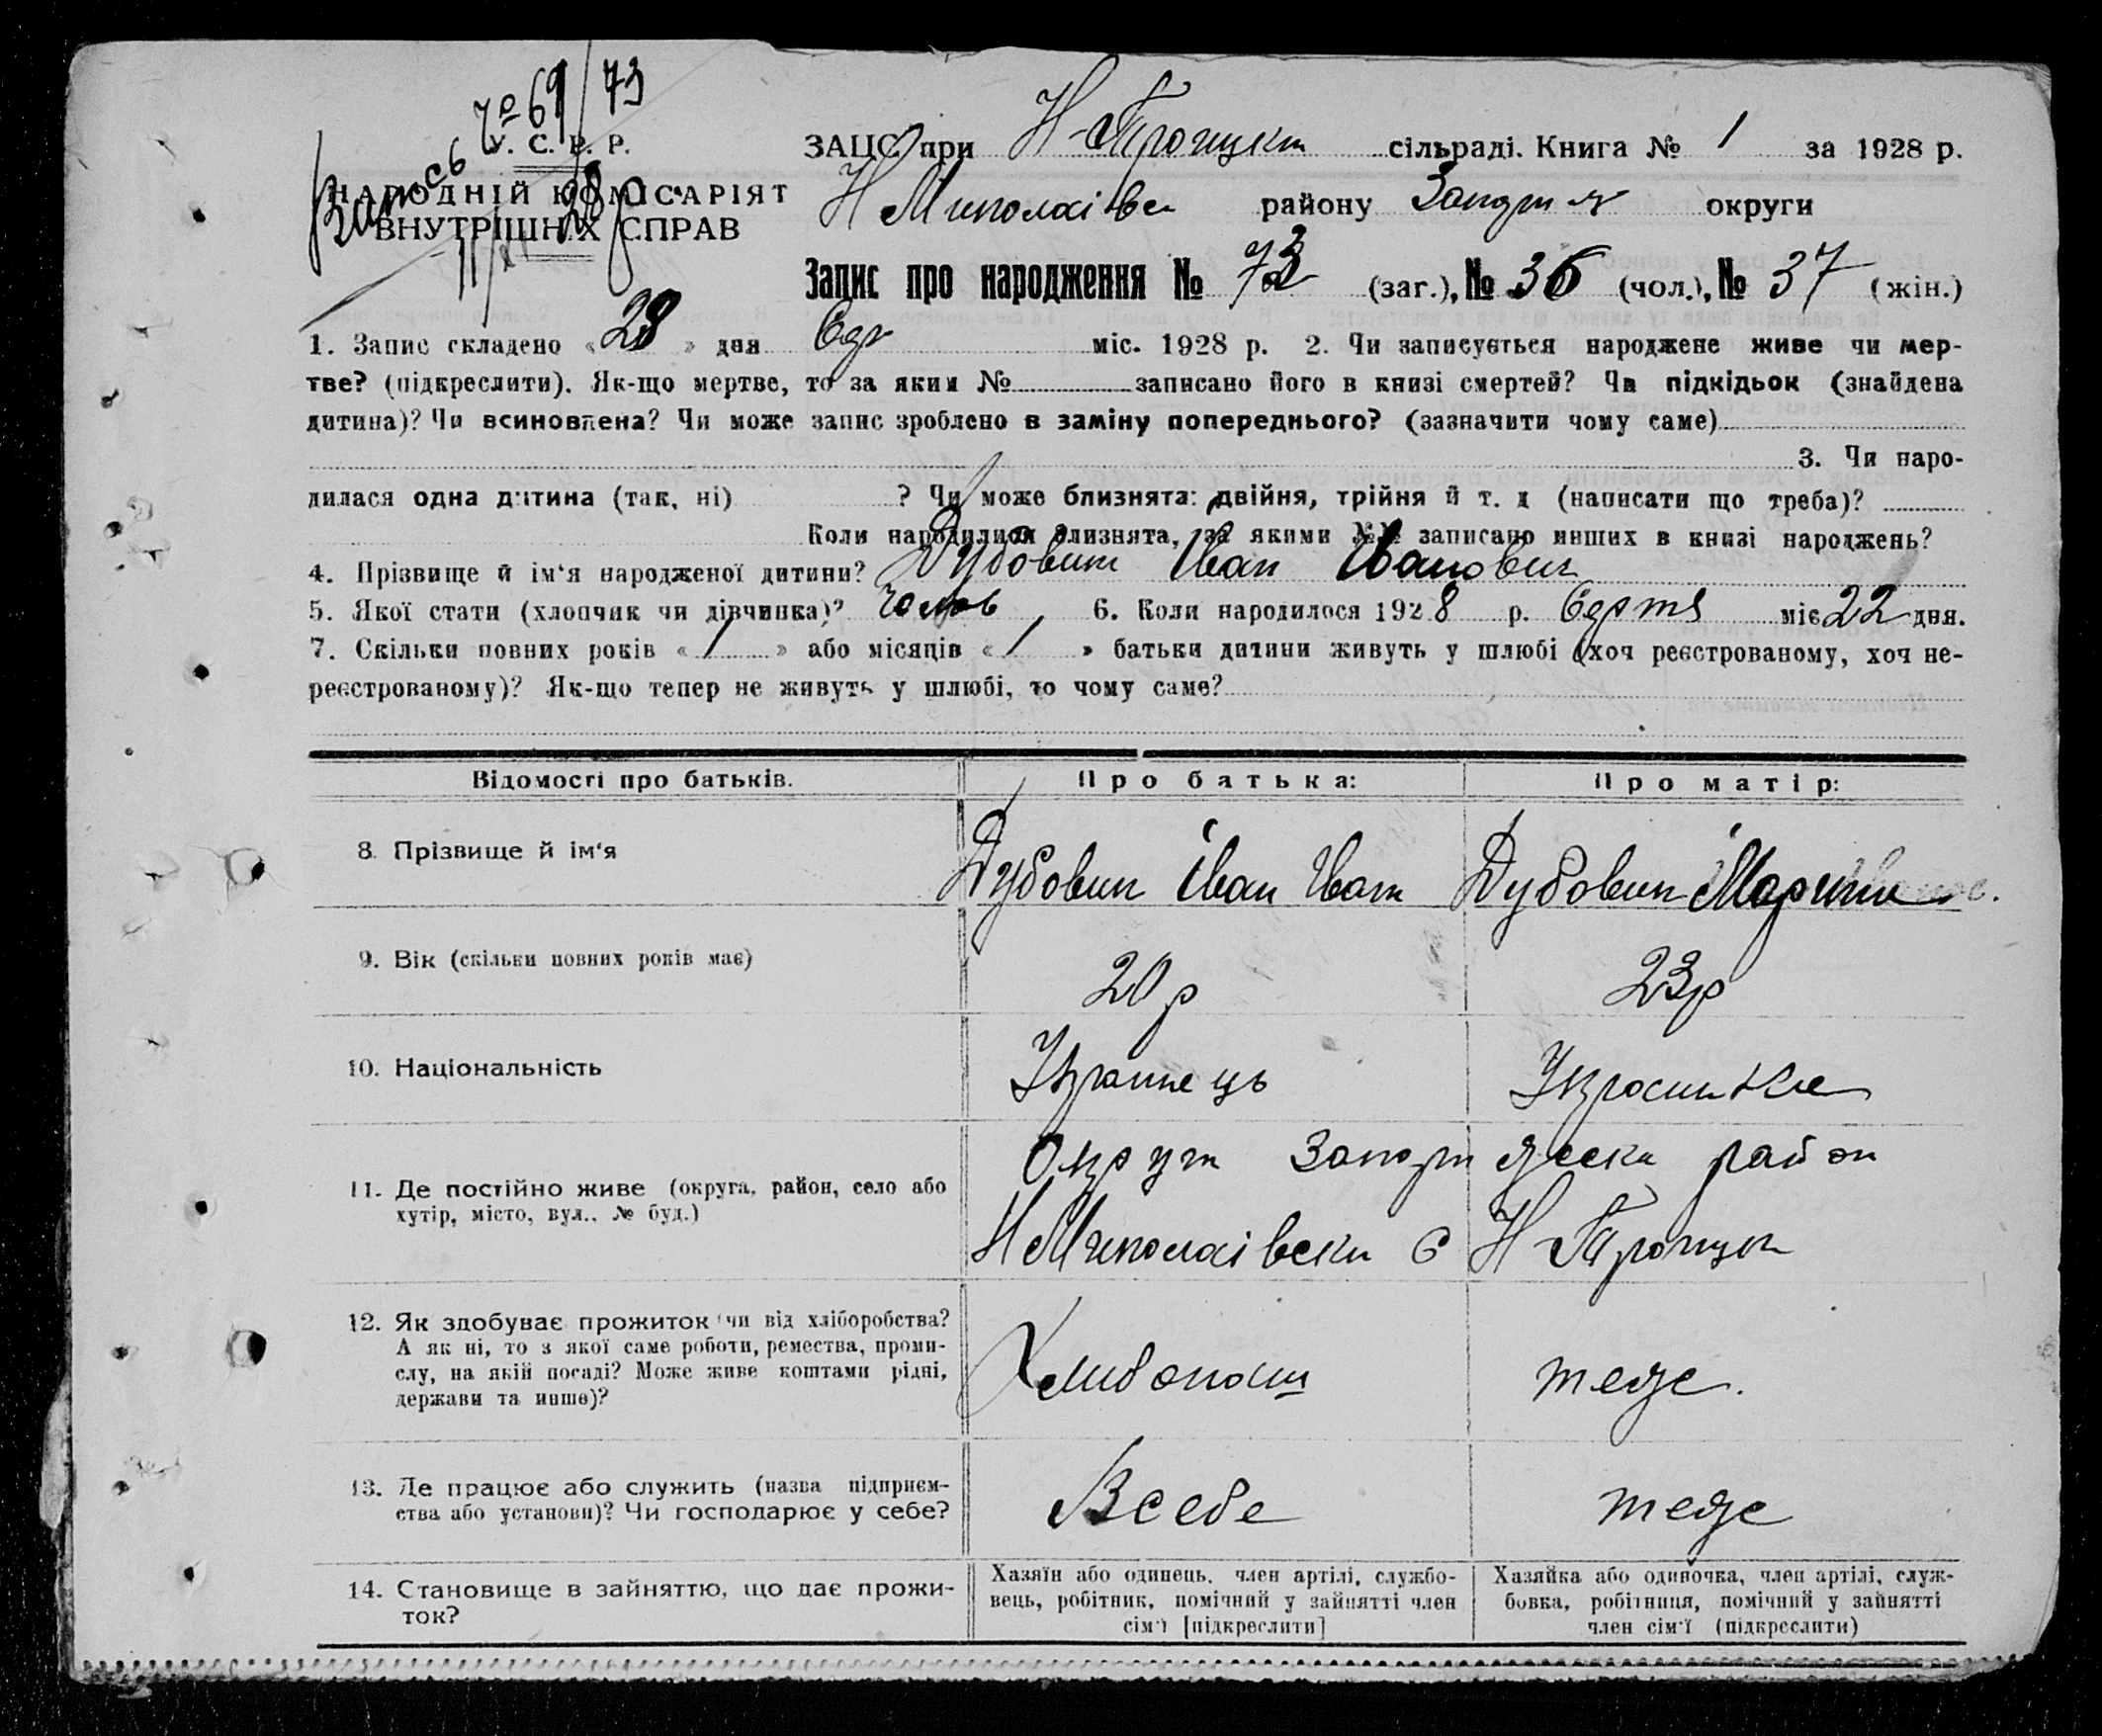 № 69/73
У. С. Р. Р.
ЗАЦС при Н-Троицкт сільраді. Книга № 1 за 1928 р.
НАРОДНІЙ КОМІСАРІЯТ
ВНУТРІШНІХ СПРАВ
Н Миколаівс району округи
Запис про народження № 73 (заг.), № 36 (чол.), № 37 (жін.)
1. Запис складено « 28 » дня міс. 1928 р. 2. Чи записується народжене живе чи мер-
тве? (підкреслити). Як-що мертве, то за яким № записано його в книзі смертей? Чи підкідьок (знайдена
дитина)? Чи всиновлена? Чи може запис зроблено в заміну попереднього? (зазначити чому саме)
3. Чи наро-
дилася одна дитина (так, ні) ? Чи може близнята: двійня, трійня й т. д (написати що треба)?
Коли народилися близнята, за якими №№ записано инших в книзі народжень?
4. Прізвище й ім‘я народженої дитини? Дубовик Іван Іванович
5. Якої стати (хлопчик чи дівчинка)? 6. Коли народилося 1928 р. міс 22 дня.
7. Скільки повних років « 1 » або місяців « 1 » батьки дитини живуть у шлюбі (хоч реєстрованому, хоч не-
реєстрованому)? Як-що тепер не живуть у шлюбі, то чому саме?
Відомості про батьків. Про батька: Про матір:
8. Прізвище й ім‘я Дубовик Іван Іван Дубовик
9. Вік (скільки повних років має) 20 р 23р
10. Національність Українець Украинка
11. Де постійно живе (округа, район, село або Округи район
хутір, місто, вул., № буд.) Н Миколаівски С Н-Троицк
12. Як здобуває прожиток чи від хліборобства?
А як ні, то з якої саме роботи, ремества, проми-
слу, на якій посаді? Може живе коштами рідні, Хлибопаш теже.
держави та инше)?
13. Де працює або служить (назва підприєм- В себе теже
ства або установи)? Чи господарює у себе?
14. Становище в зайняттю, що дає прожи-
ток?
Хазяїн або одинець, член артілі, службо-
вець, робітник, помічний у зайнятті член
сім‘ї [підкреслити]
Хазяйка або одиночка, член артілі, служ-
бовка, робітниця, помічний у зайнятті
член сім‘ї (підкреслити)